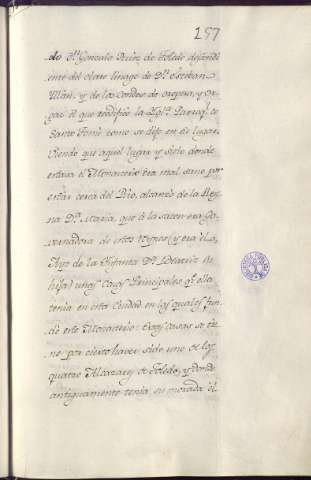 157
do Dn. Gonzalo Ruiz de Toledo descendi
ente del claro linage de Dn. Esteban
Illan, y de los Condes de Orgaz, y Or
gaz el que reedificó la Igla. Parroql. de
Santo Tomé como se dijo en su lugar.
Viendo que aquel lugar y sitio donde
estava el Monasterio era mal sano por
estar cerca del Rio, alcanzó de la Rey
na Da. Maria, que à la sazon era Go
vernadora de estos Reynos (y era el
Ayo de la Infanta Da. Beatriz su
hija) unas Casas Principales qe. ella
tenia en esta Ciudad en las quales fun
dó este Monasterio: Estas casas se tie
ne por cierto haver sido uno de los
quatro Alcazares de Toledo, y donde
antiguamente tenia su morada el